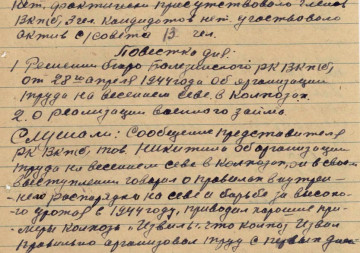 нет. фактически присутствовало членов
ВКП(б) 3 чел. Кандидатов нет. участвовало
актив с/совета 13 чел.
Повестка дня:
1. Решении бюро РК ВКП(б)
от 28го апреля 1944 года об организации
труда на весеннем севе в колхозах.
2. О реализации военного займа.
Слушали: Сообщение представителя
РК ВКП(б) тов. Никитина об организации
труда на весеннем севе в колхозах, он в своем
выступлении говорил о правилах внутрен-
-него распорядка на севе и борьбе за высоко-
-го урожая в 1944 году, приводил хорошие при-
-меры колхоза что колхоз
правильно организовал труд с первых дней